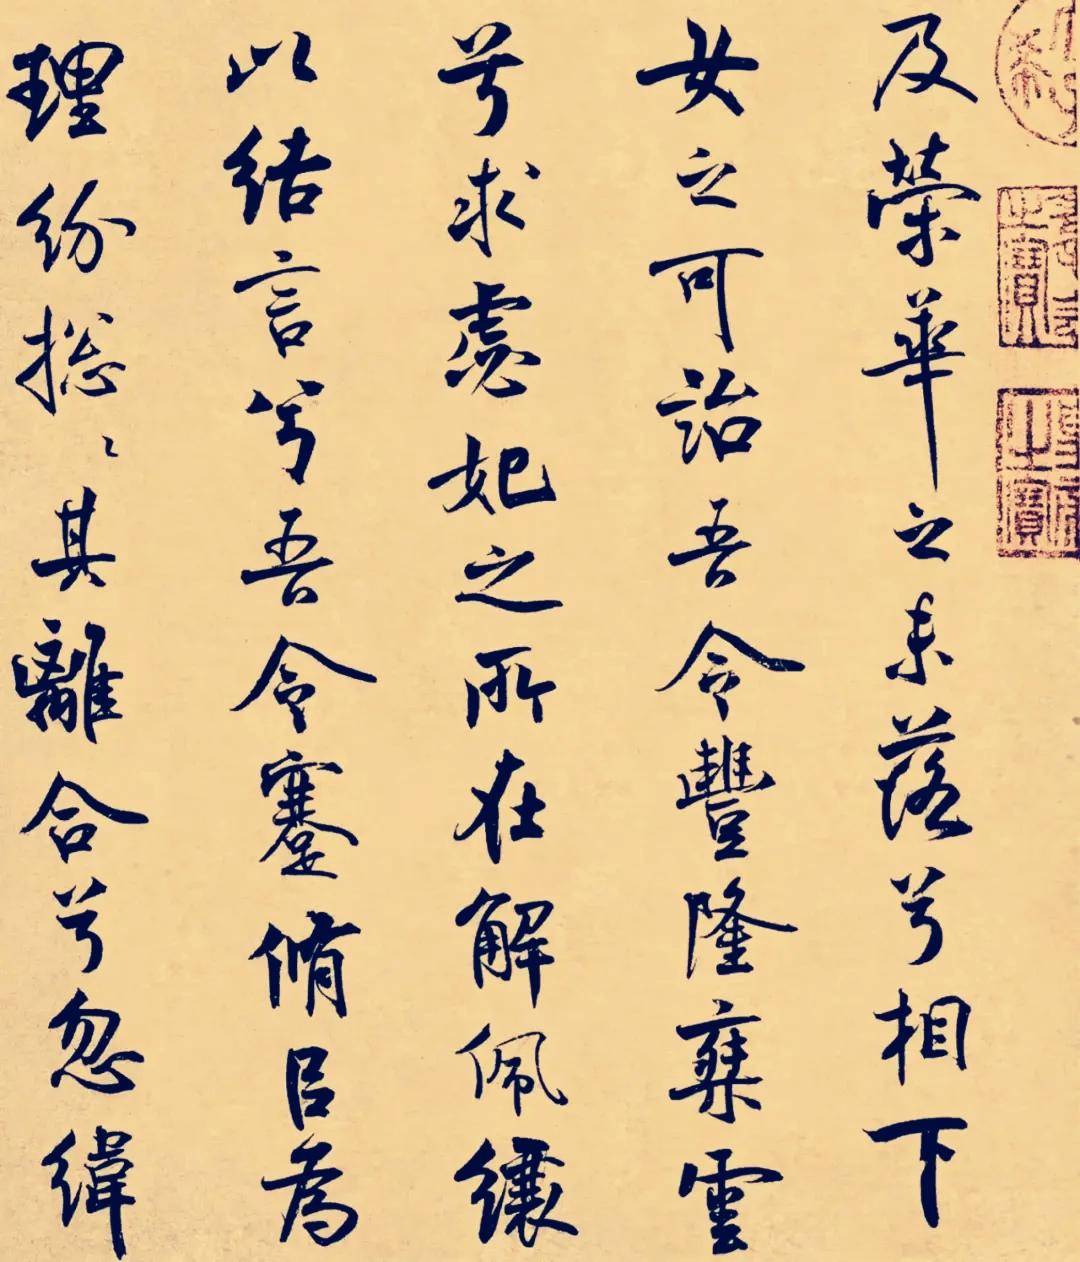 及榮華之未落兮相下
女之可詒吾令豐隆椉雲
兮求虙妃之所在解佩纕
以結言兮吾令蹇脩㠯為
理紛揔〻其離合兮忽緯